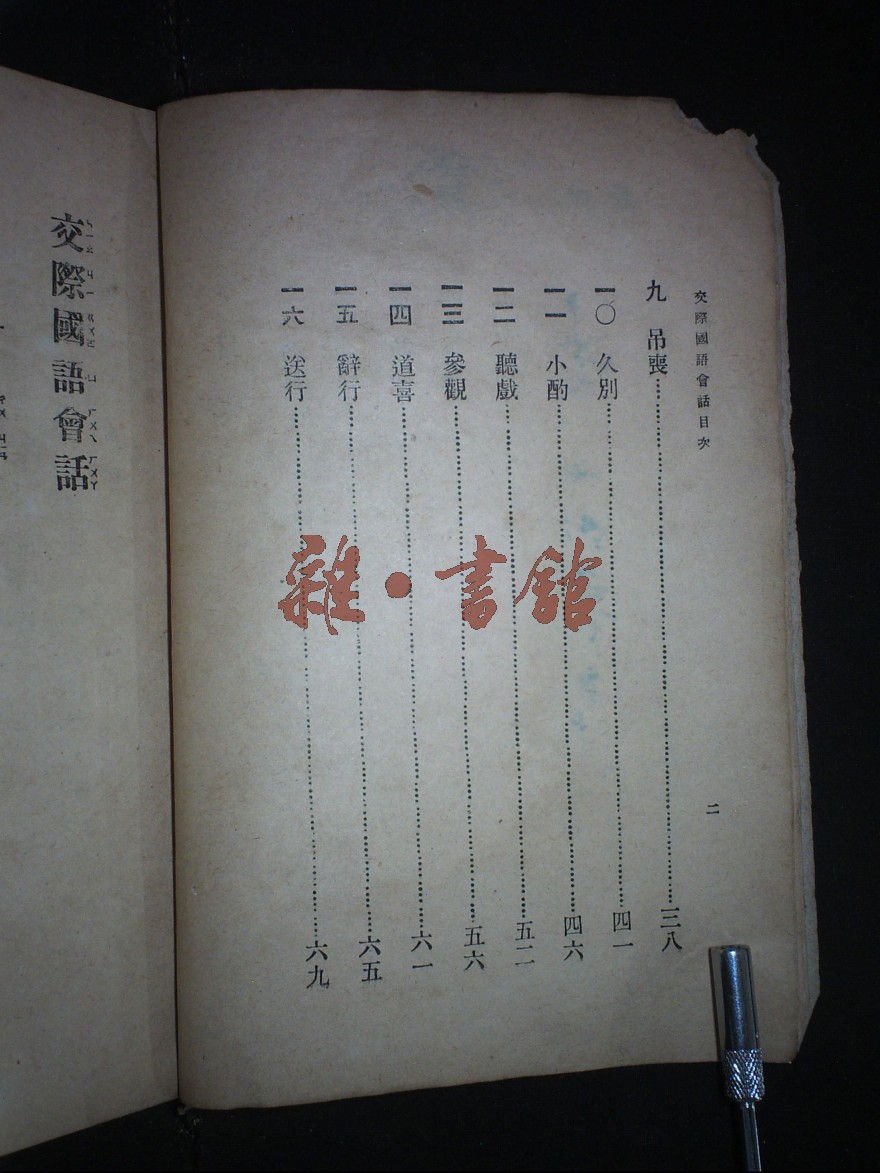 交際國語會話目次
九　吊喪……三八
一〇　久別……四一
一一　小酌……四六
一二　聽戲……五二
一三　參觀……五六
一四　道喜……六一
一五　辭行……六五
一六　送行……六九
二
交際國語會話
雜·書館